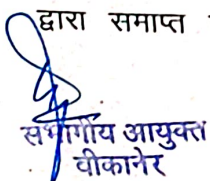 द्वारा समाप्त
संभागीय आयुक्त
वीकानेर